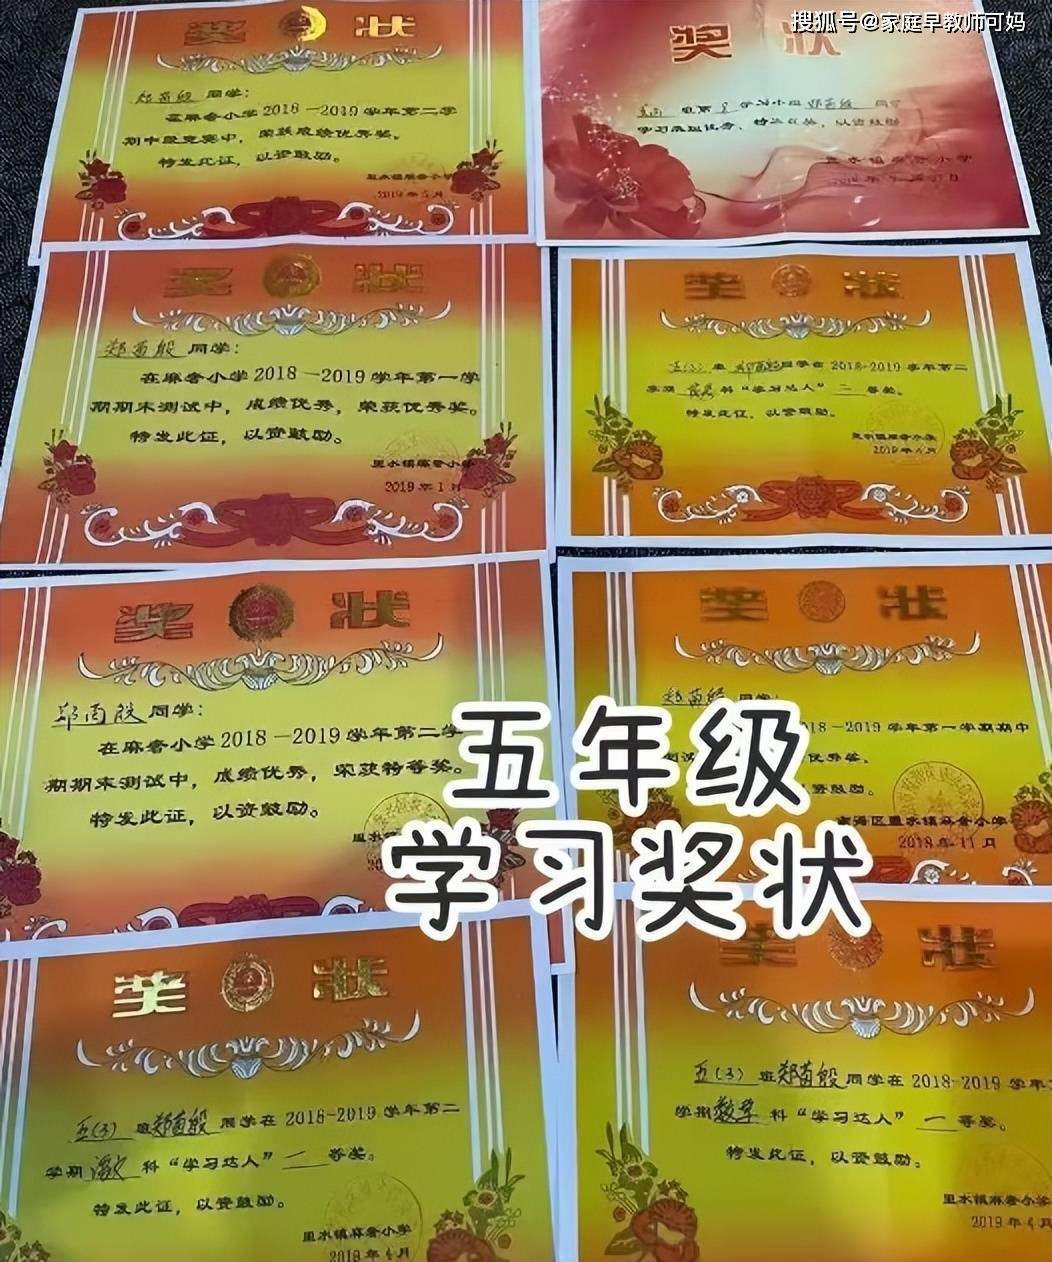 搜狐号@家庭早教师可妈
奖 状
同学:
在麻奢小学2018－2019学年第二学
期中段竞赛中，荣获成绩优秀奖。
特发此证，以资鼓励。
里水镇麻奢小学
2019年5月
奖 状
学习小组 同学
里水镇麻奢小学
奖 状
郑茵殷 同学:
在麻奢小学2018－2019学年第一学
期期末测试中，成绩优秀，荣获优秀奖。
特发此证，以资鼓励。
里水镇麻奢小学
2019年1月
奖 状
五(3) 班 郑茵殷同学在 2018-2019 学年第二
学期 科“学习达人” 二 等奖。
特发此证，以资鼓励。
里水镇麻奢小学
2019年4月
奖 状
同学:
在麻奢小学2018－2019学年第二学
期期末测试中，成绩优秀，荣获特等奖。
特发此证，以资鼓励。
里水
奖 状
郑茵殷 同学:
018－2019学年第一学期期中
优秀奖。
资鼓励。
南海区里水镇麻奢小学
2018年11月
五年级
学习奖状
奖 状
五(3) 班郑茵殷同学在 2018-2019 学年第二
学期 语文 科“学习达人” 二 等奖。
特发此证，以资鼓励。
里水镇麻奢小学
2019年4月
奖 状
五(3) 班郑茵殷同学在 2018-2019 学年
学期 数学 科“学习达人” 一 等奖。
特发此证，以资鼓励。
里水镇麻奢小学
2019年4月